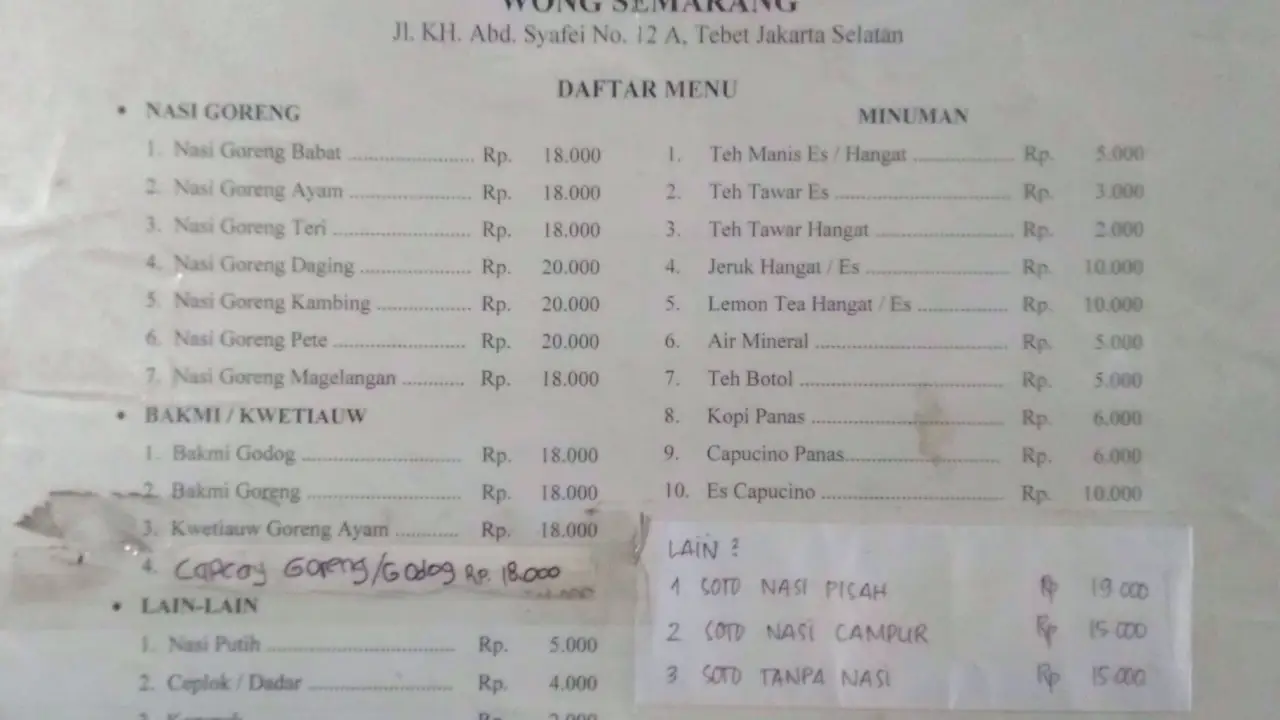 WONG SEMARANG
Jl. KH. Abd. Syafei No. 12 A, Tebet Jakarta Selatan
DAFTAR MENU
• NASI GORENG
1. Nasi Goreng Babat ........................ Rp. 18.000
2. Nasi Goreng Ayam ........................ Rp. 18.000
3. Nasi Goreng Teri ........................ Rp. 18.000
4. Nasi Goreng Daging ...................... Rp. 20.000
5. Nasi Goreng Kambing .................... Rp. 20.000
6. Nasi Goreng Pete ........................ Rp. 20.000
7. Nasi Goreng Magelangan ............ Rp. 18.000
• BAKMI / KWETIAUW
1. Bakmi Godog ............................ Rp. 18.000
2. Bakmi Goreng ........................... Rp. 18.000
3. Kwetiauw Goreng Ayam ............ Rp. 18.000
4. Capcay Goreng/Godog Rp. 18.000
• LAIN-LAIN
1. Nasi Putih ................................ Rp. 5.000
2. Ceplok / Dadar ......................... Rp. 4.000
MINUMAN
1. Teh Manis Es / Hangat .................. Rp. 5.000
2. Teh Tawar Es .............................. Rp. 3.000
3. Teh Tawar Hangat ........................ Rp. 2.000
4. Jeruk Hangat / Es ........................ Rp. 10.000
5. Lemon Tea Hangat / Es ................ Rp. 10.000
6. Air Mineral ................................ Rp. 5.000
7. Teh Botol .................................. Rp. 5.000
8. Kopi Panas ................................ Rp. 6.000
9. Capucino Panas.......................... Rp. 6.000
10. Es Capucino .............................. Rp. 10.000
LAIN ²
1 SOTO NASI PISAH Rp 19.000
2 SOTO NASI CAMPUR Rp 15.000
3 SOTO TANPA NASI Rp 15.000